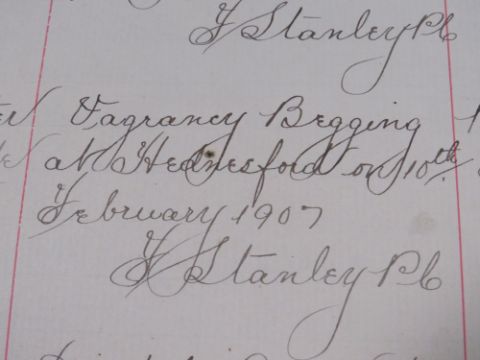 F Stanley PC
Vagrancy Begging
at Hednesford on 10th
February 1907
F Stanley PC